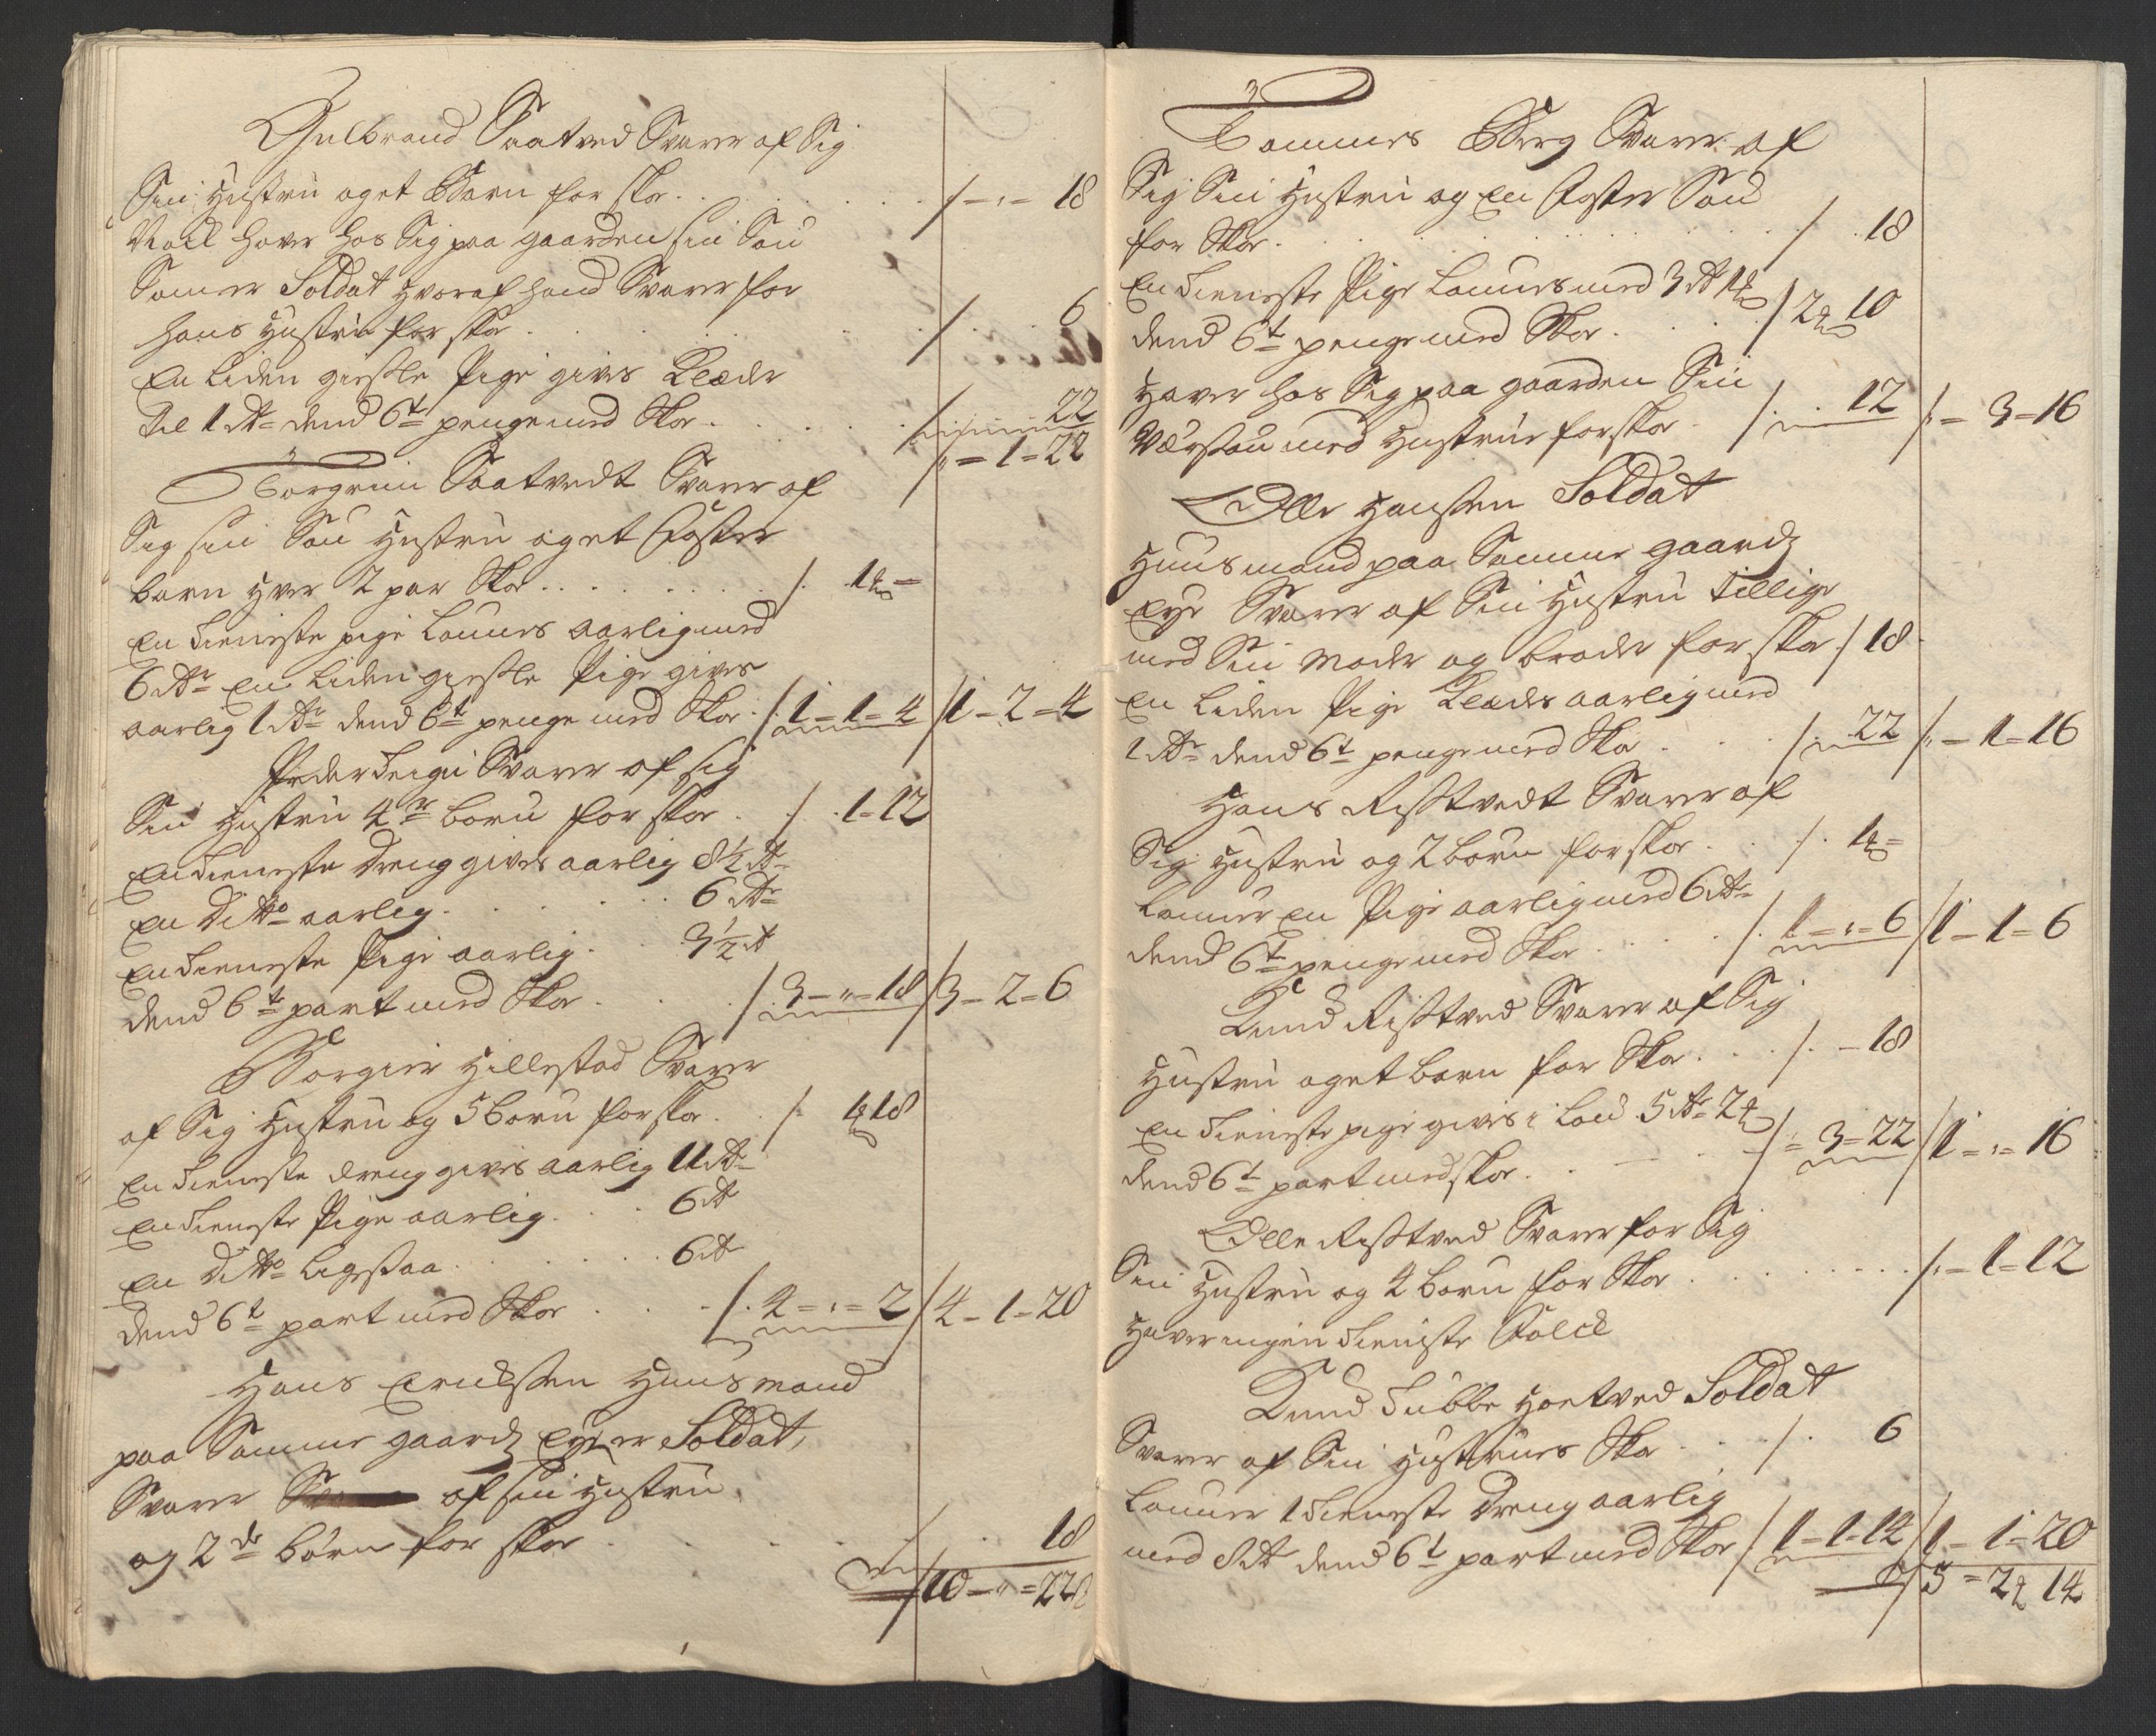 Gulbrand Saatved Svarer af Sig
Sin Hustru og et Barn for skoe . . . /-"- 18
Noch haver hos Sig paa gaarden sin Søn
Som er Soldat hvoraf hand Svarer for
hans Hustru for skoe . . . / . . 6
En liden giesle Pige gives Klæder
til 1 dr dend 6te penge med Skoe . . . / 22
/" = 1 = 22
Torgrim Saatvedt Svarer af
Sig sin Søn Hustru og et Foster
barn hver 2 par Skoe . . . /. 1 =
En tieniste pige lønnes aarlig med
6 dr En liden giesle Pige gives
aarlig 1 dr dend 6te penge med Skoe . /. 1 = 1 = 4 /1 - 2 = 4
Peder Teigen Svarer af sig
Sin Hustru 4re børn for skoe . /. 1 = 12
En tieniste dreng gives aarlig 8½ dr
En Ditto aarlig . . . 6 dr
En tieniste Pige aarlig . . 3½ dr
dend 6te part med Skoe . . . /. 3 - " = 18 /3 - 2 = 6
Borgier Hillestad Svarer
af Sig Hustru og 5 børn for skoe . . /. 1 18
En tieniste dreng gives aarlig 11 dr
En tieniste Pige aarlig . . . 6 dr
En Ditto ligesaa . . . 6 dr
dend 6te part med Skoe . . . /. 4 = " = 2 /4 - 1 = 20
Hans Erichsen Huusmand
paa Samme gaards Eye er Soldat,
Svarer af sin Hustru
og 2de børn for skoe . . . / . . 18
/10 - " = 22
Tommes Berg Svarer af
Sig Sin Hustru og en Foster Søn
for Skoe . . . / . 18
En tieniste Pige lønnes med 3 dr 1
dend 6te penge med Skoe . . . / 2 10
Haver hos Sig paa gaarden Sin
Værsøn med Hustrue for skoe . /. . 12 /" = 3 = 16
Olle Hansen Soldat
Huusmand paa Samme gaards
Eye Svarer af Sin Hustru tillige
med Sin Moder og broder for skoe / 18
En liden Pige Klædes aarlig med
1 dr dend 6te penge med Skoe . . . /. 22 /" = 1 = 16
Hans Risstvedt Svarer af
Sig Hustru og 2 børn for skoe . . /. 1 =
Lønner En Pige aarlig med 6 dr
dend 6te penge med Skoe . . . /. 1 = " = 6 /1 - 1 = 6
Knud Risstved Svarer af Sig
Hustru og et barn for Skoe . . . /. - 18
En tieniste pige gives i Løn 5 dr 2
dend 6te part med skoe . . . /" 3 = 22 /1 = " = 16
Olle Risstved Svarer for Sig
Sin Hustru og 4 børn for Skoe . . . /" - 1 = 12
Haver ingen tieniste Folck
Knud Tubbe Hoetved Soldat
Svarer af Sin Hustrues Skoe . . . / . 6
Lønner 1 tieniste Dreng aarlig
med 8 dr dend 6te part med Skoe / 1 = 1 = 14 /1 - 1 = 20
/5 = 2 14